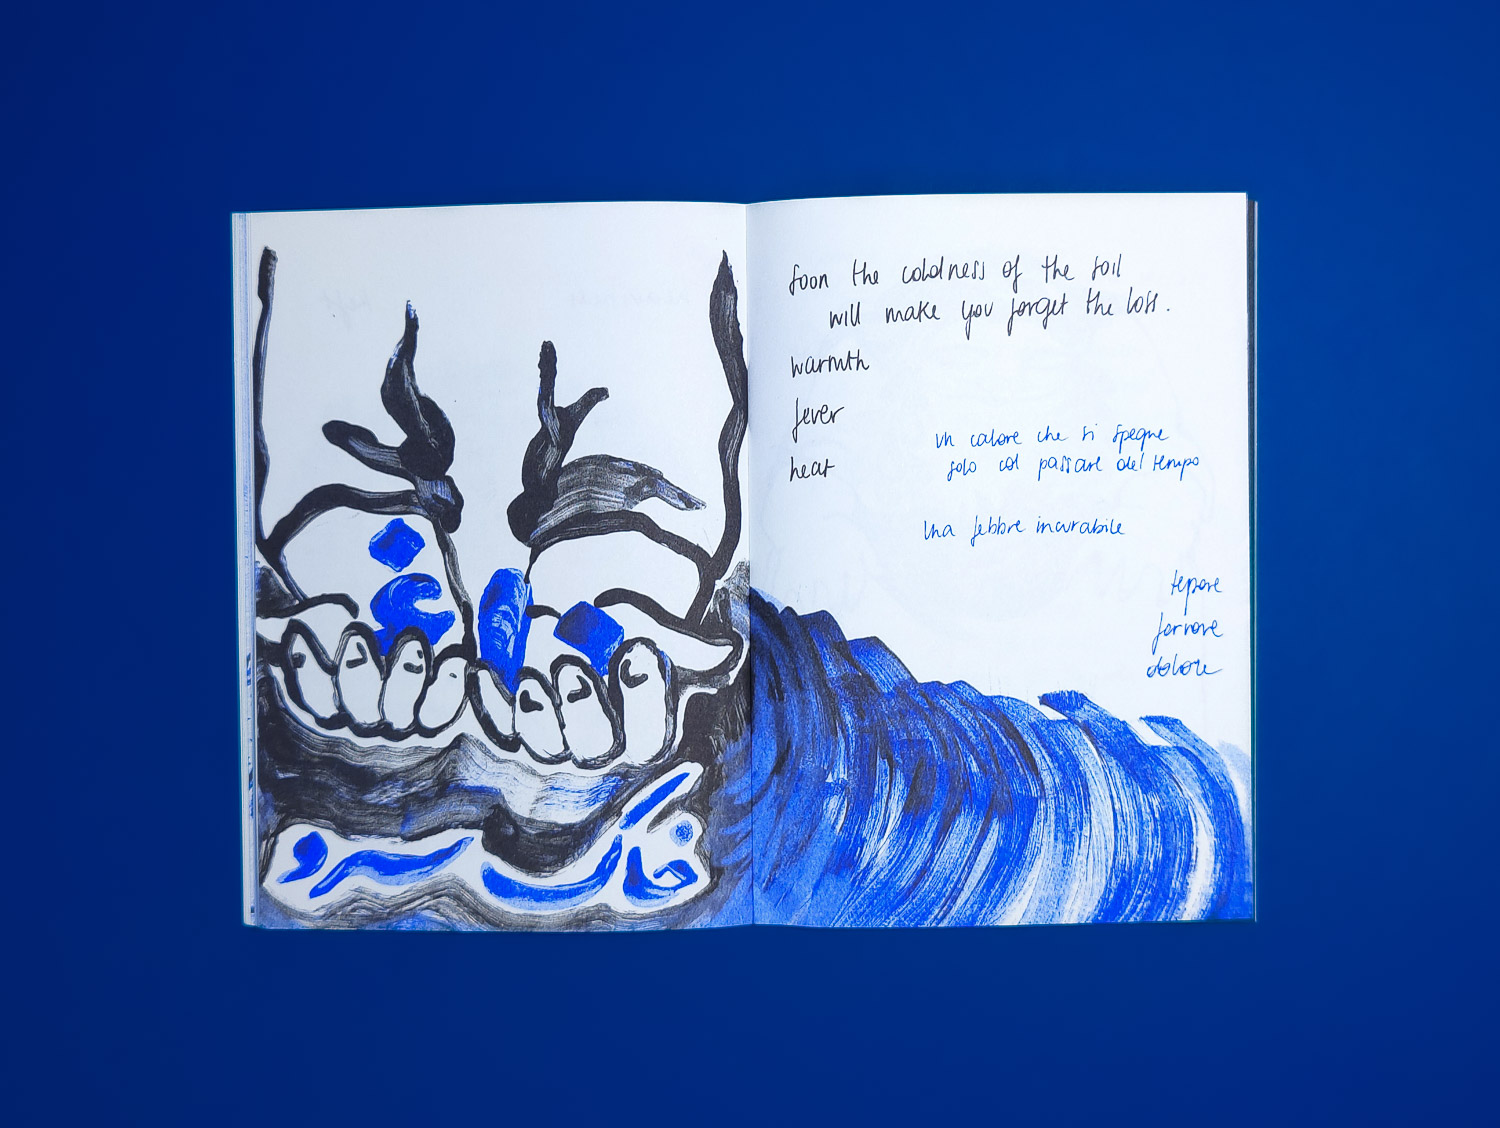 خاک سرد
Soon the coldness of the soil
will make you forget the loss.
warmth
fever
heat
un calore che si spegne
solo col passare del tempo
Una febbre incurabile
tepore
fervore
dolore